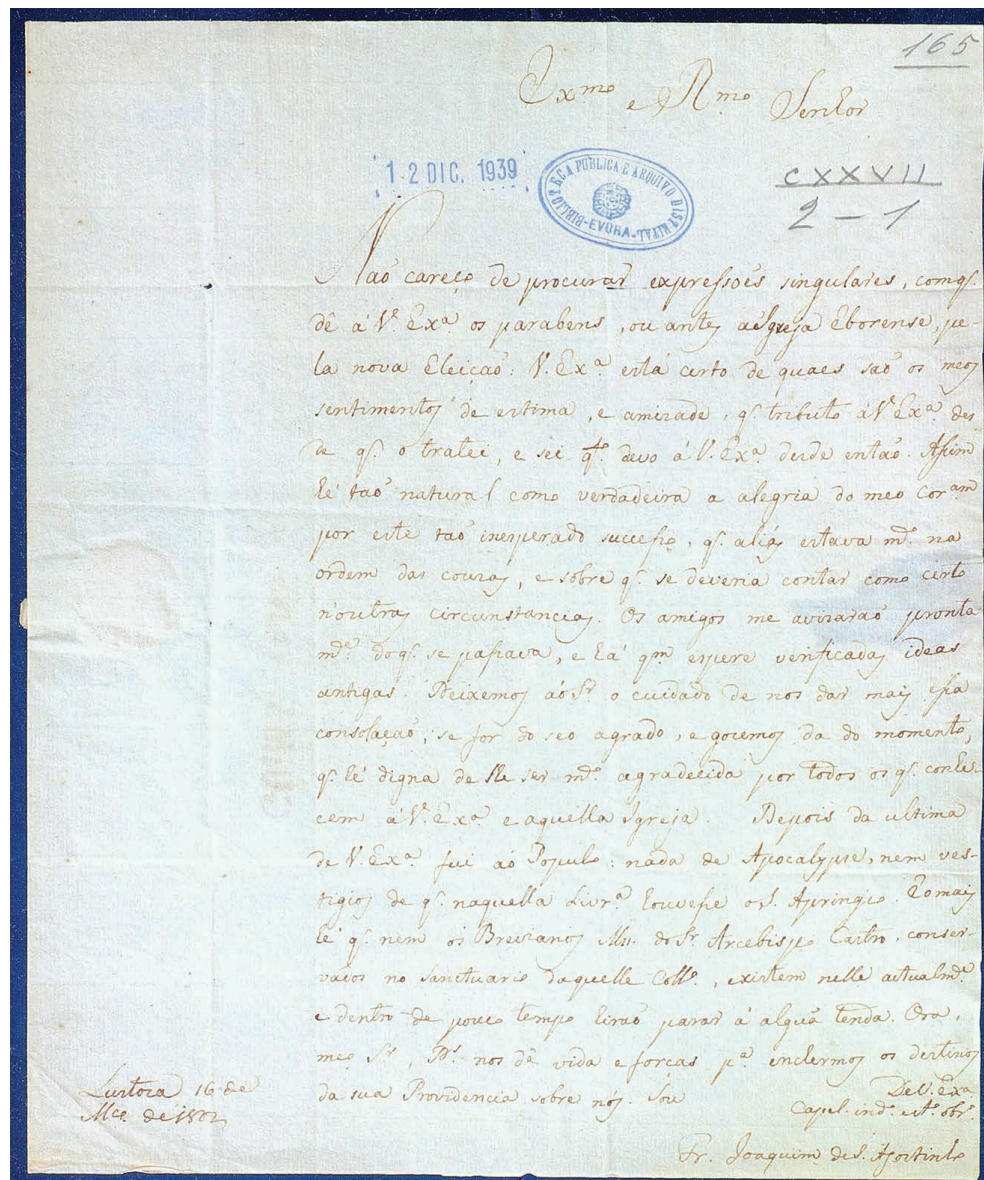 165
Exmo e Rmo Senhor
12 DIC. 1939
BIBLIOTECA PUBLICA E ARQUIVO DISTRITAL -EVORA-
CXXVII
2-1
Naõ careço de procurar expressoẽs singulares, com q.
dê á V. Exa. os parabens, ou antes á Igreja Eborense, pe-
la nova Eleiçaõ: V. Exa. está certo de quaes saõ os meos
sentimentos de estima, e amizade, q. tributo á V. Exa. des
de q. o tratei, e sei qto. devo á V. Exa. desde entaõ. Assim
hé taõ natural como verdadeira a alegria do meo coram
por este taõ inesperado successo, q. aliás estava mto. na
ordem das couzas, e sobre q. se deveria contar como certo
n'outras circunstancias. Os amigos me avizaraõ pronta
mte. do q. se passava, e há qm espere verificadas ideas
antigas. Deixemos áo Sr. o cuidado de nos dar mais essa
consolaçaõ, se for do seo agrado, e gozemos da do momento,
q. hé digna de lhe ser mto. agradecida por todos os q. conhe-
cem á V. Exa. e aquella Igreja. Depois da ultima
de V. Exa. fui áo Populo: nada de Apocalypse, nem ves-
tigios de q. naquella Livra. houvesse o S. Apringio. E o mais
hé q. nem os Breviarios Mss. do Sr. Arcebispo Castro, conser-
vados no Sanctuario daquelle Collo., existem nelle actualmte.
e dentro de pouco tempo hiraõ parar á algũa tenda. Ora,
meo Sr., Ds. nos dê vida e forcas pa. enchermos os destinos
da sua Providencia sobre nós. Sou
De V. Exa.
Capel. ind. est. obr.
Fr. Joaquim de S. Agostinho
16 de
Mço. de 1802